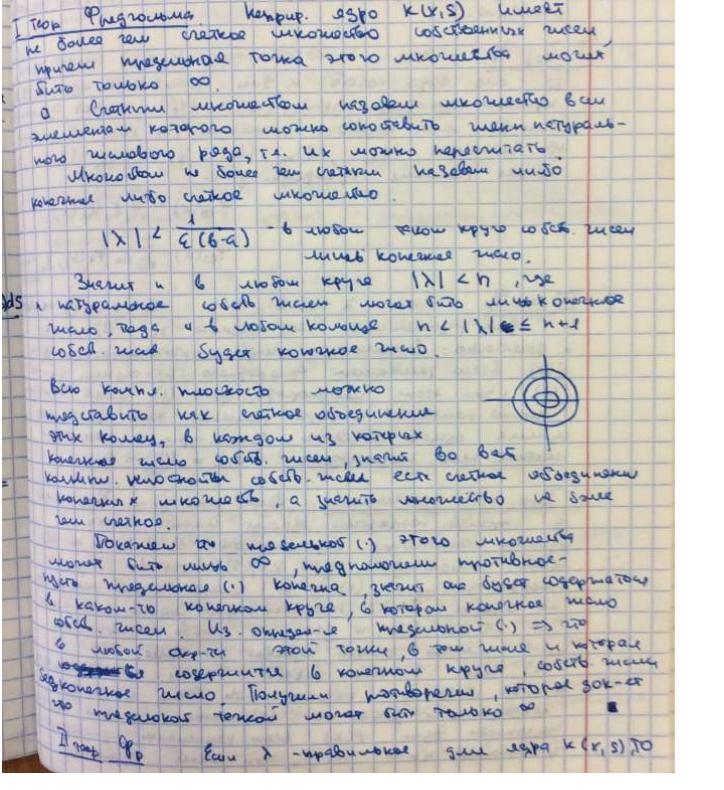 I теор Фредгольма. Непрер. ядро K(x,s) имеет
не более чем счетное множество собственных чисел,
причем предельная точка этого множества может
быть только ∞.
Счетным множеством назовем множество всем
элементам которого можно сопоставить члены натураль-
ного числового ряда, т.е. их можно пересчитать.
Множеством не более чем счетным назовем либо
конечное либо счетное множество.
|λ| < 1/(ε(b-a)) - в любом таком круге собств. чисел
лишь конечное число.
Значит и в любом круге |λ| < n, где
ds n натуральное собств чисел может быть лишь конечное
число, тогда и в любом кольце n < |λ| ≤ n+1
собств. чисел будет конечное число.
Всю компл. плоскость можно
представить как счетное объединение
этих колец, в каждом из которых
конечное число собств. чисел, значит во всей
компл. плоскости собств. чисел есть счетное объединение
конечных множеств, а значить множество не более
чем счетное.
Покажем что предельной (·) этого множества
может быть лишь ∞, предположим противное-
пусть предельная (·) конечна, значит она будет содержаться
в каком-то конечном круге, в котором конечное число
собств. чисел. Из определ-я предельной (·) => что
в любой окр-ти этой точки, в том числе и которая
содержится в конечном круге, собств. чисел
бесконечное число. Получили противоречие, которое док-ет
что предельной точкой может быть только ∞
II теор Фр Если λ - правильное для ядра K(x,s), то